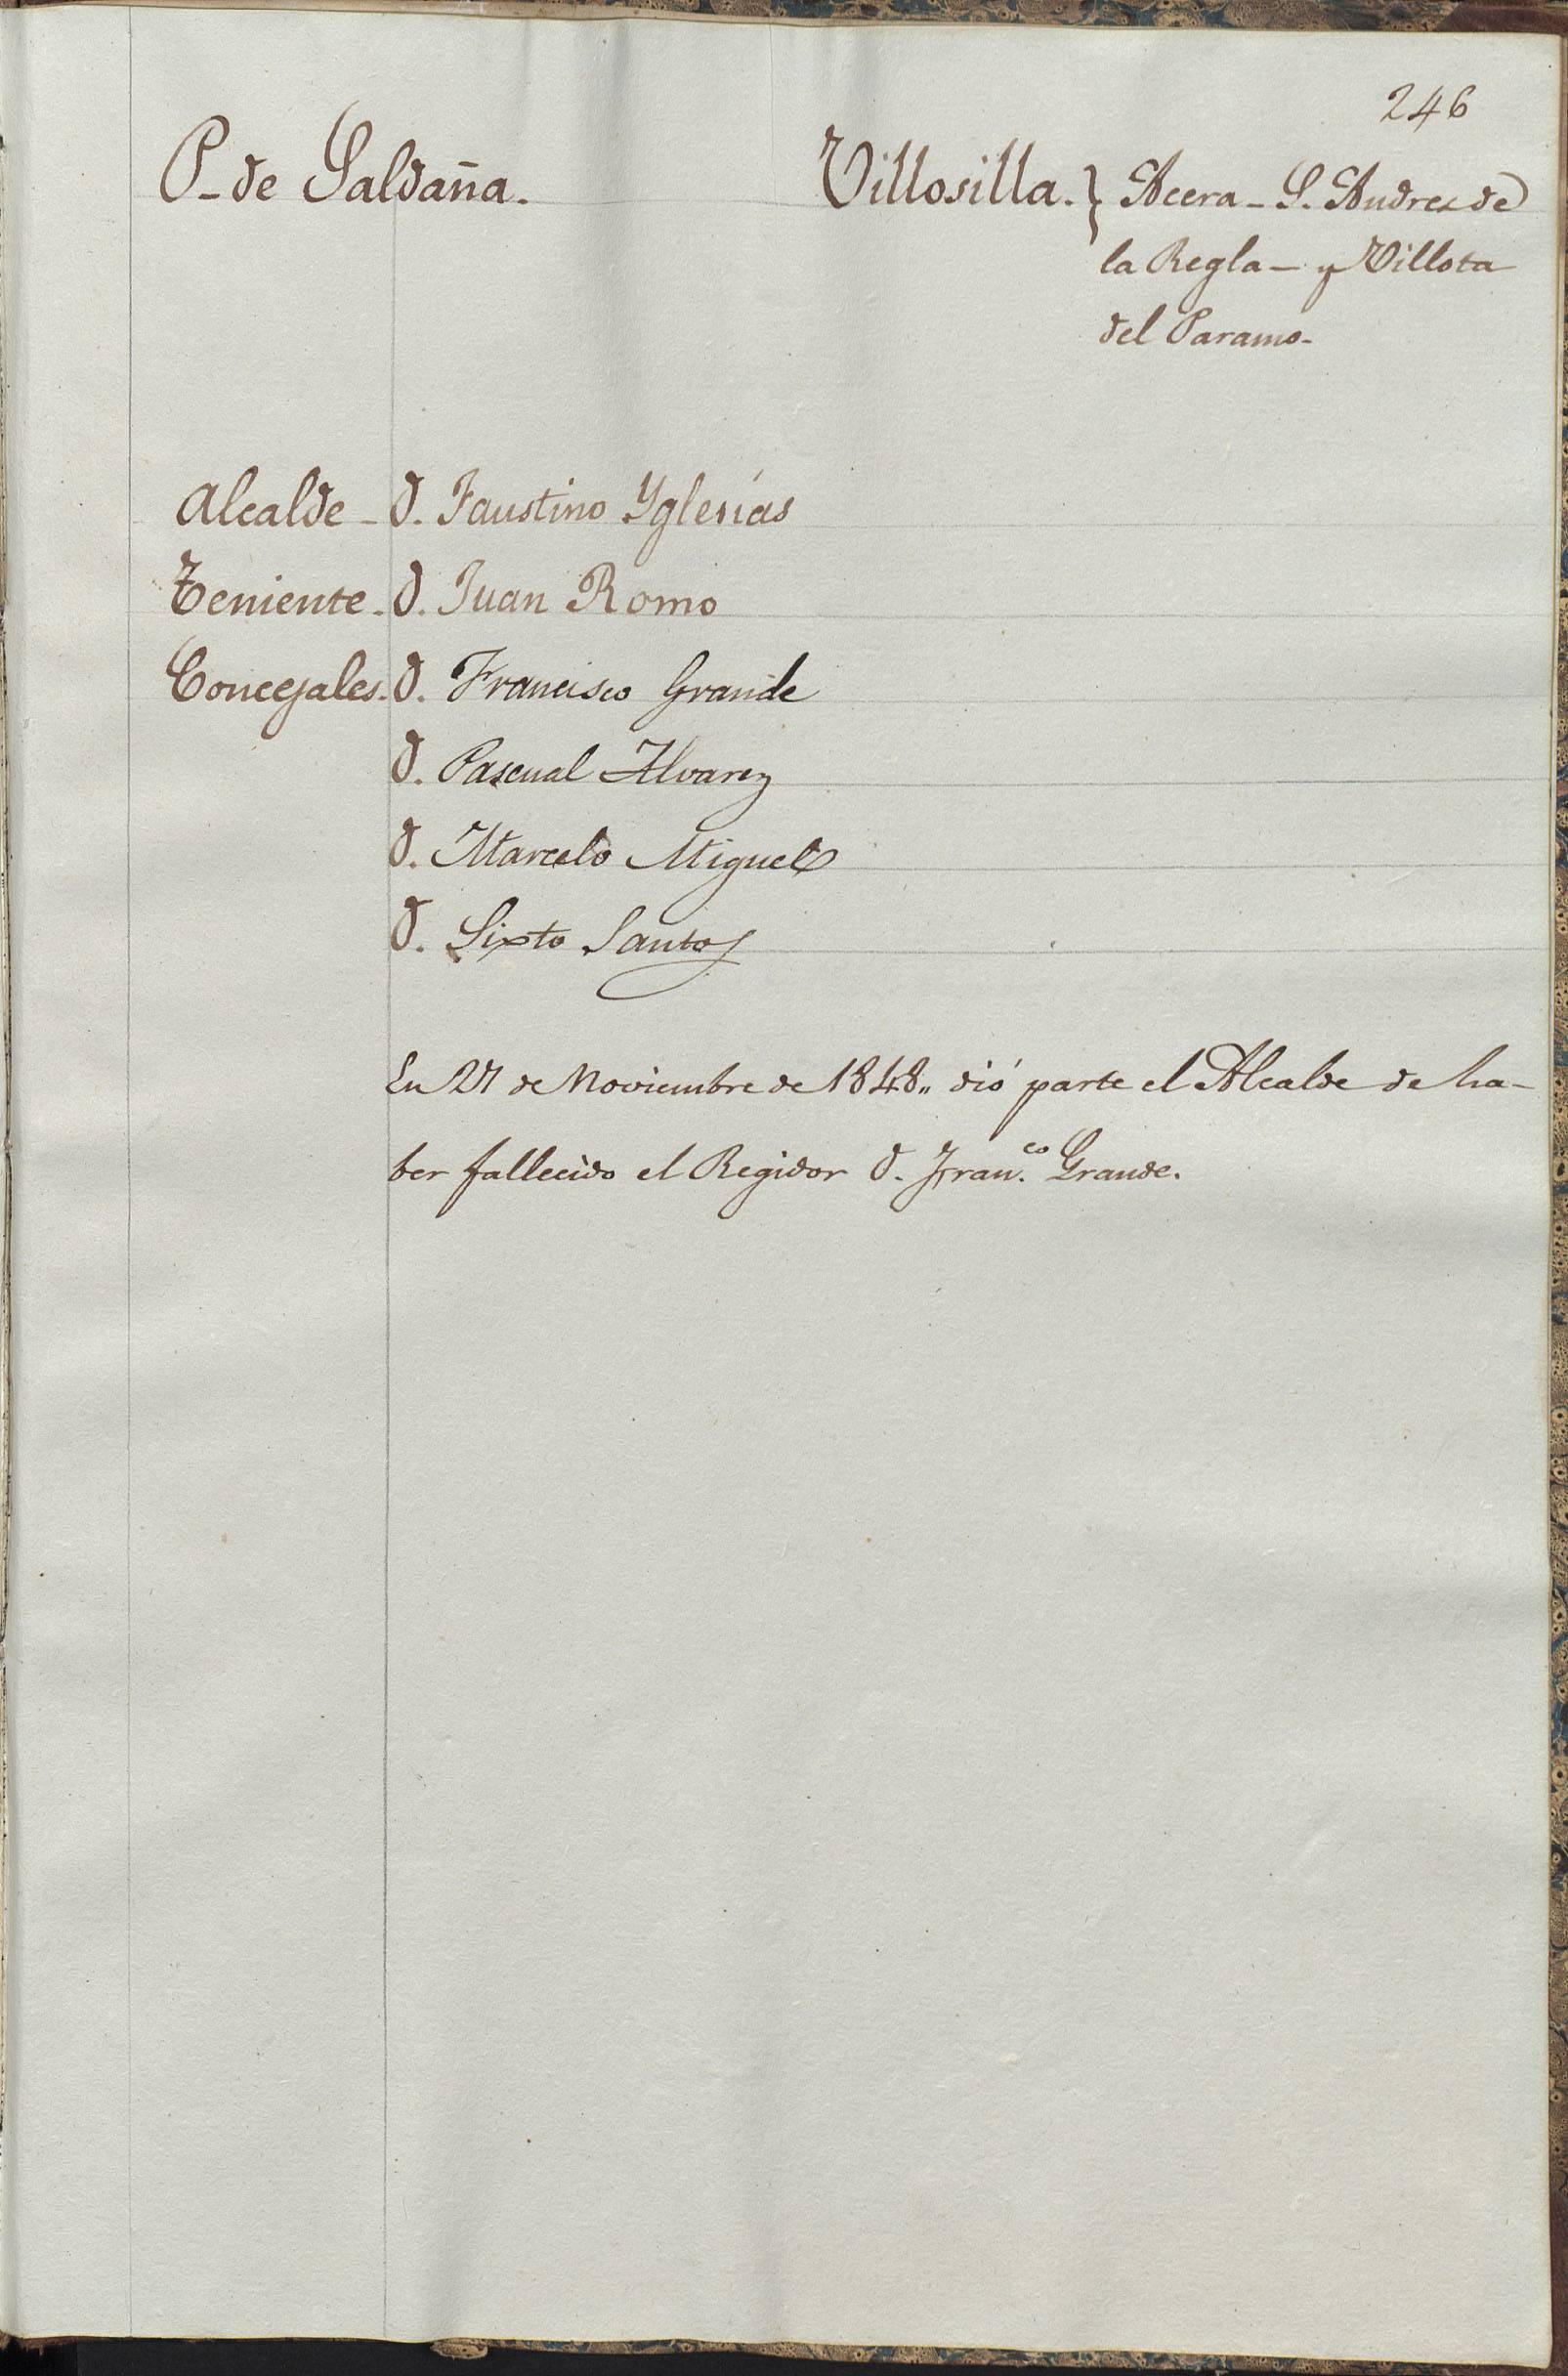 246
P. de Saldaña. Villosilla. } Acera - S. Andres de
la Regla - y Villota
del Paramo -
Alcalde - D. Faustino Yglesías
Teniente - D. Juan Romo
Concejales - D. Francisco Grande
D. Pascual Alvarez
D. Marcelo Miguel
D. Sixto Santos
En 27 de Noviembre de 1848,, dió parte el Alcalde de ha-
ber fallecido el Regidor D. Fran.co Grande.